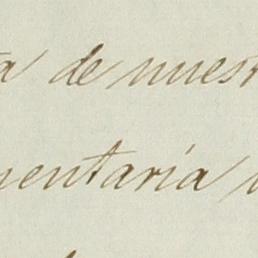 a de nuestr
mentaria